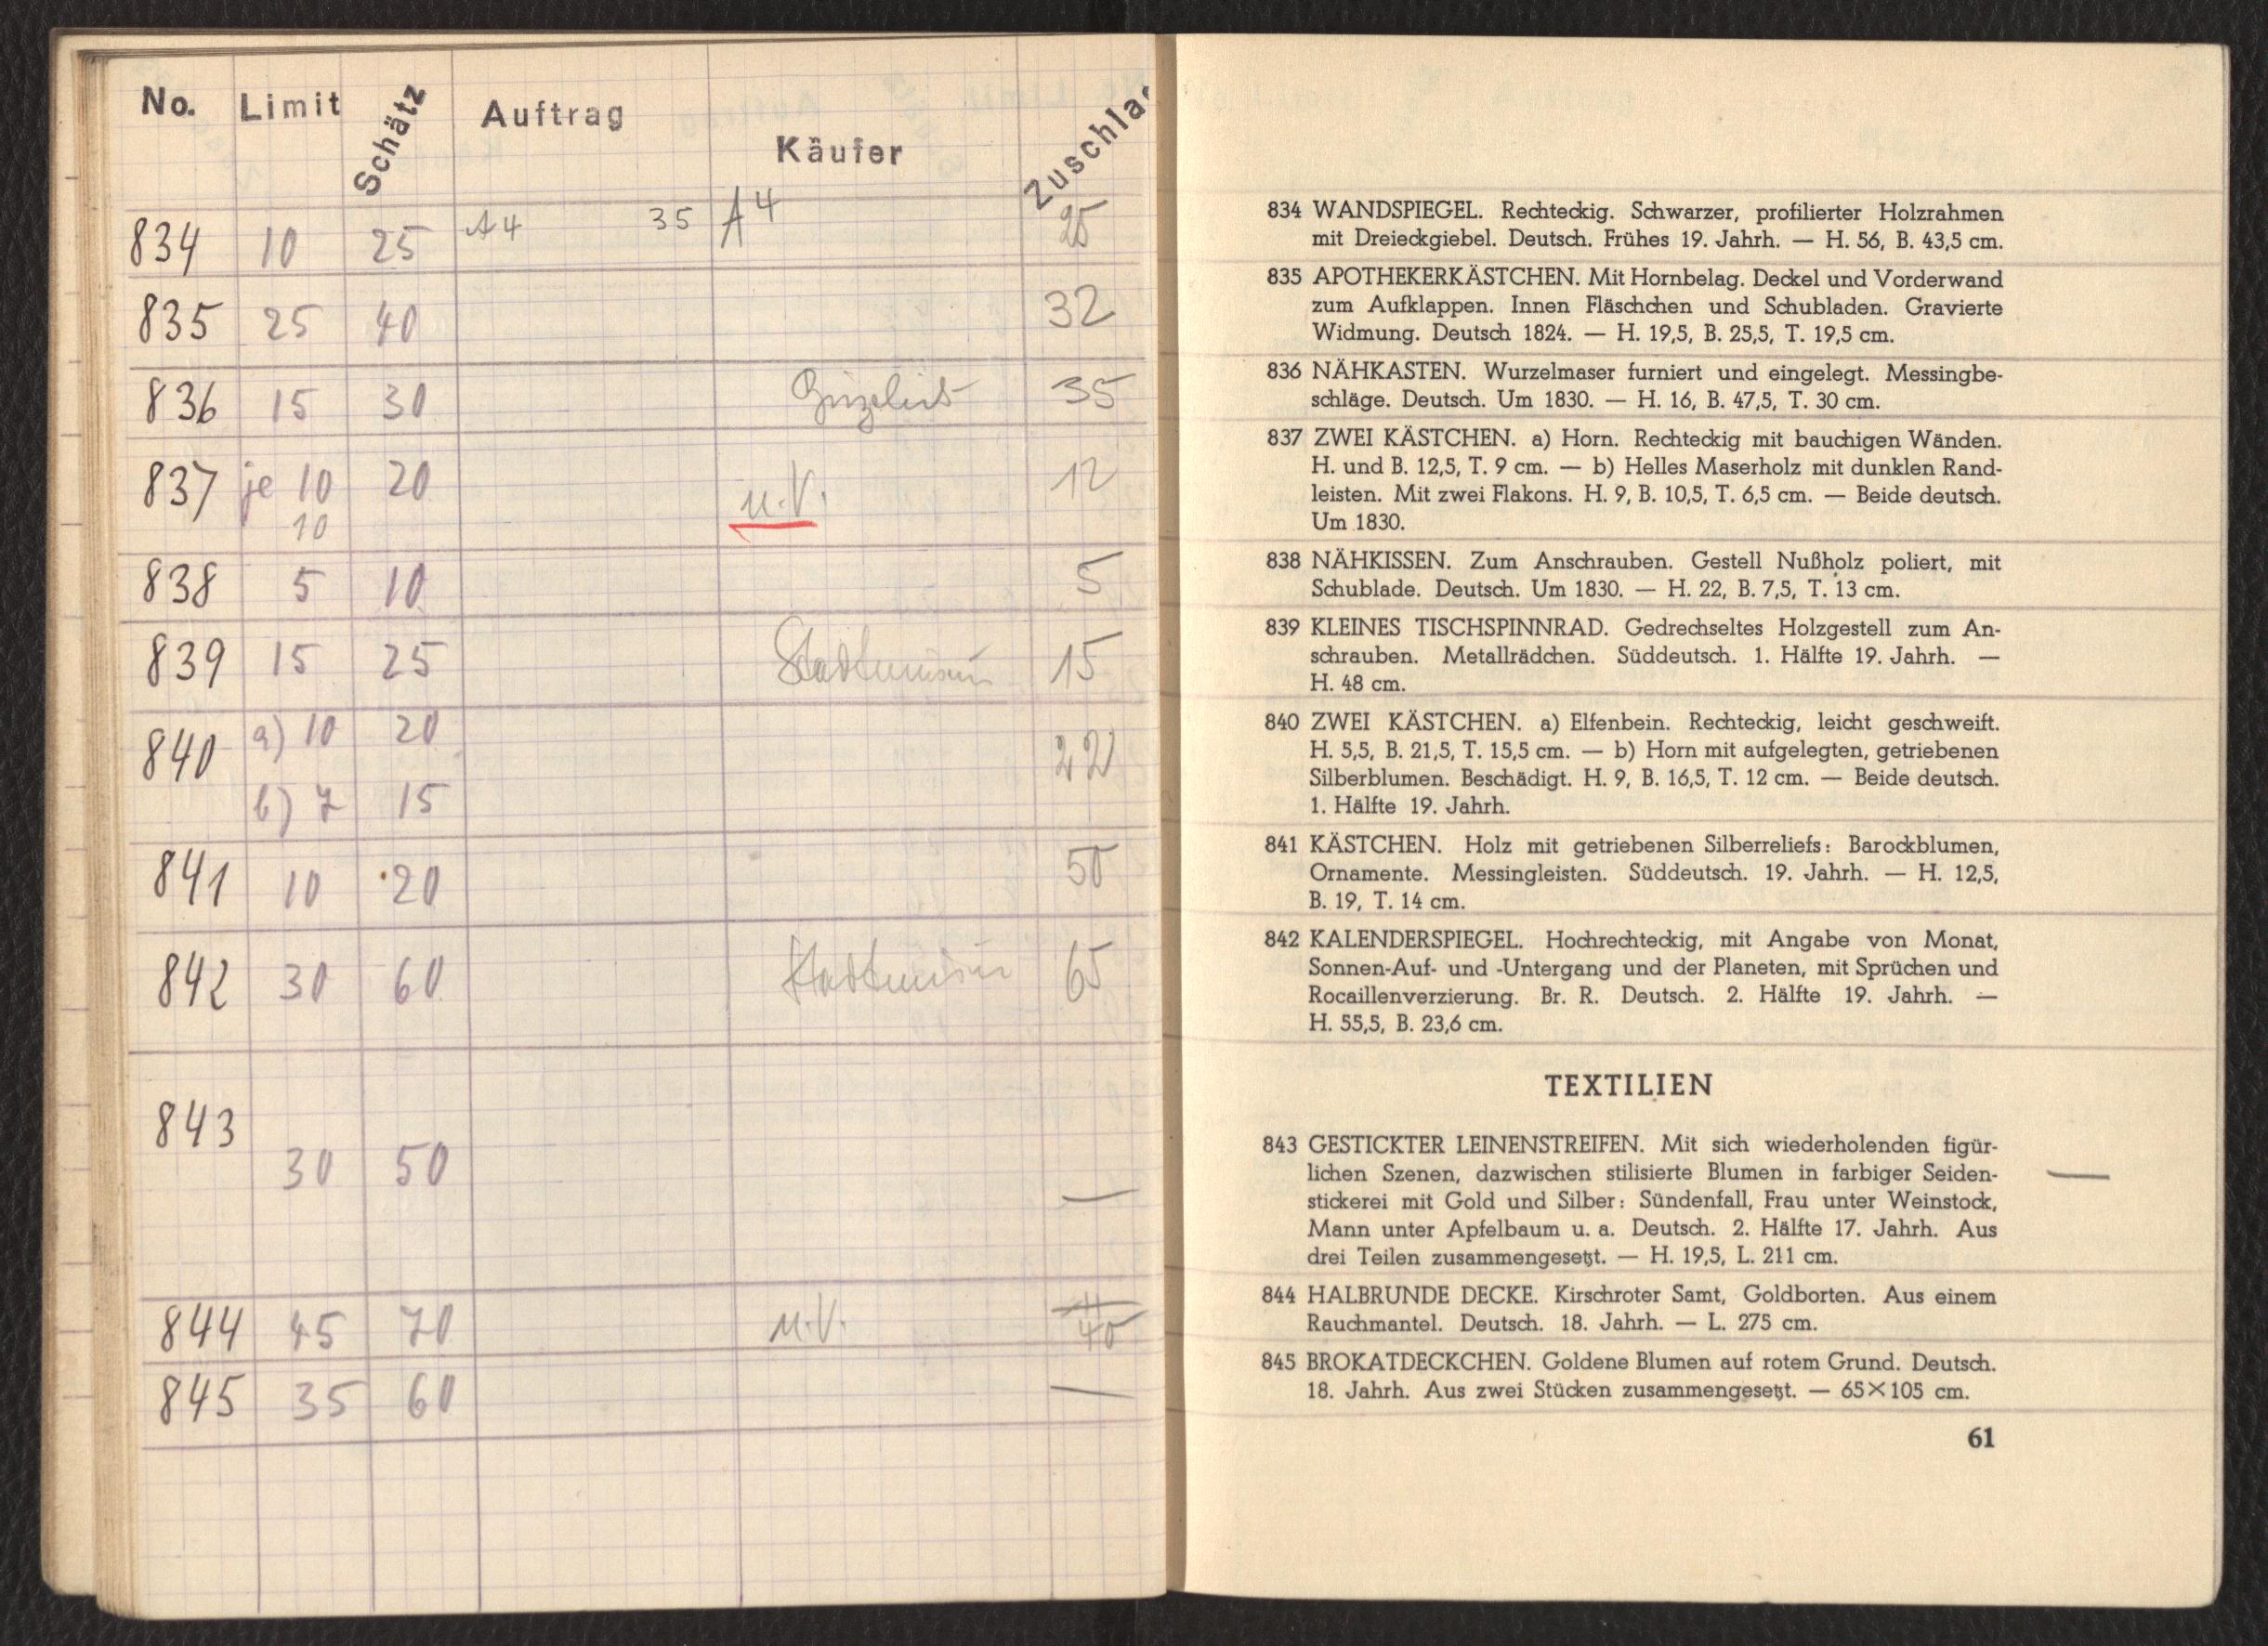 No. Limit Schätz Auftrag Käufer Zuschlag
834 10 25 A4 35 A4 25
835 25 40 32
836 15 30 35
837 je 10 20 u.V. 12
10
838 5 10 5
839 15 25 Stadtmuseum 15
840 a) 10 20 22
b) 7 15
841 10 20 50
842 30 60 Stadtmuseum 65
843
30 50 —
844 45 70 u.V. 40
845 35 60 —
834 WANDSPIEGEL. Rechteckig. Schwarzer, profilierter Holzrahmen
mit Dreieckgiebel. Deutsch. Frühes 19. Jahrh. — H. 56, B. 43,5 cm.
835 APOTHEKERKÄSTCHEN. Mit Hornbelag. Deckel und Vorderwand
zum Aufklappen. Innen Fläschchen und Schubladen. Gravierte
Widmung. Deutsch 1824. — H. 19,5, B. 25,5, T. 19,5 cm.
836 NÄHKASTEN. Wurzelmaser furniert und eingelegt. Messingbe-
schläge. Deutsch. Um 1830. — H. 16, B. 47,5, T. 30 cm.
837 ZWEI KÄSTCHEN. a) Horn. Rechteckig mit bauchigen Wänden.
H. und B. 12,5, T. 9 cm. — b) Helles Maserholz mit dunklen Rand-
leisten. Mit zwei Flakons. H. 9, B. 10,5, T. 6,5 cm. — Beide deutsch.
Um 1830.
838 NÄHKISSEN. Zum Anschrauben. Gestell Nußholz poliert, mit
Schublade. Deutsch. Um 1830. — H. 22, B. 7,5, T. 13 cm.
839 KLEINES TISCHSPINNRAD. Gedrechseltes Holzgestell zum An-
schrauben. Metallrädchen. Süddeutsch. 1. Hälfte 19. Jahrh. —
H. 48 cm.
840 ZWEI KÄSTCHEN. a) Elfenbein. Rechteckig, leicht geschweift.
H. 5,5, B. 21,5, T. 15,5 cm. — b) Horn mit aufgelegten, getriebenen
Silberblumen. Beschädigt. H. 9, B. 16,5, T. 12 cm. — Beide deutsch.
1. Hälfte 19. Jahrh.
841 KÄSTCHEN. Holz mit getriebenen Silberreliefs: Barockblumen,
Ornamente. Messingleisten. Süddeutsch. 19. Jahrh. — H. 12,5,
B. 19, T. 14 cm.
842 KALENDERSPIEGEL. Hochrechteckig, mit Angabe von Monat,
Sonnen-Auf- und -Untergang und der Planeten, mit Sprüchen und
Rocaillenverzierung. Br. R. Deutsch. 2. Hälfte 19. Jahrh. —
H. 55,5, B. 23,6 cm.
TEXTILIEN
843 GESTICKTER LEINENSTREIFEN. Mit sich wiederholenden figür-
lichen Szenen, dazwischen stilisierte Blumen in farbiger Seiden- —
stickerei mit Gold und Silber: Sündenfall, Frau unter Weinstock,
Mann unter Apfelbaum u. a. Deutsch. 2. Hälfte 17. Jahrh. Aus
drei Teilen zusammengesetzt. — H. 19,5, L. 211 cm.
844 HALBRUNDE DECKE. Kirschroter Samt, Goldborten. Aus einem
Rauchmantel. Deutsch. 18. Jahrh. — L. 275 cm.
845 BROKATDECKCHEN. Goldene Blumen auf rotem Grund. Deutsch.
18. Jahrh. Aus zwei Stücken zusammengesetzt. — 65×105 cm.
61